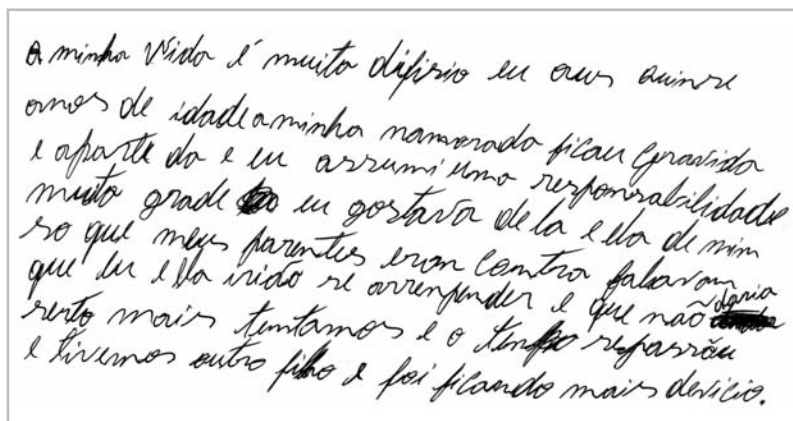 A minha Vida é muito difisio eu aus quinse
anos de idade a minha namorada ficau Gravida
e aparte da e eu assumi uma responsabilidade
muito grade eu gostava de la e ela de mim
so que meus parentes eran Comtra falavam
que eu e ela irião se arrenpender e que não daria
serto mais temtamos e o tenpo se passou
e tivemos outro filho e foi ficando mais devicio.